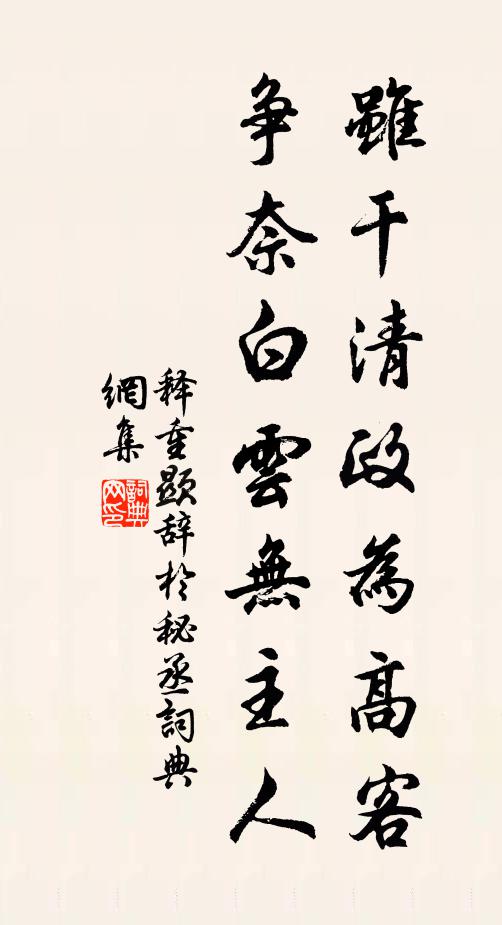 雖干清政為高客
争奈白雲無主人
释重顯辞於秘丞詞典
網集
詞典
网印